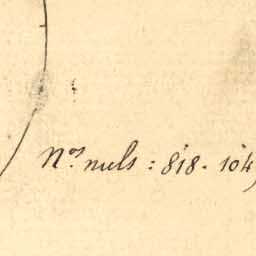 Nos. nuls : 818. 104